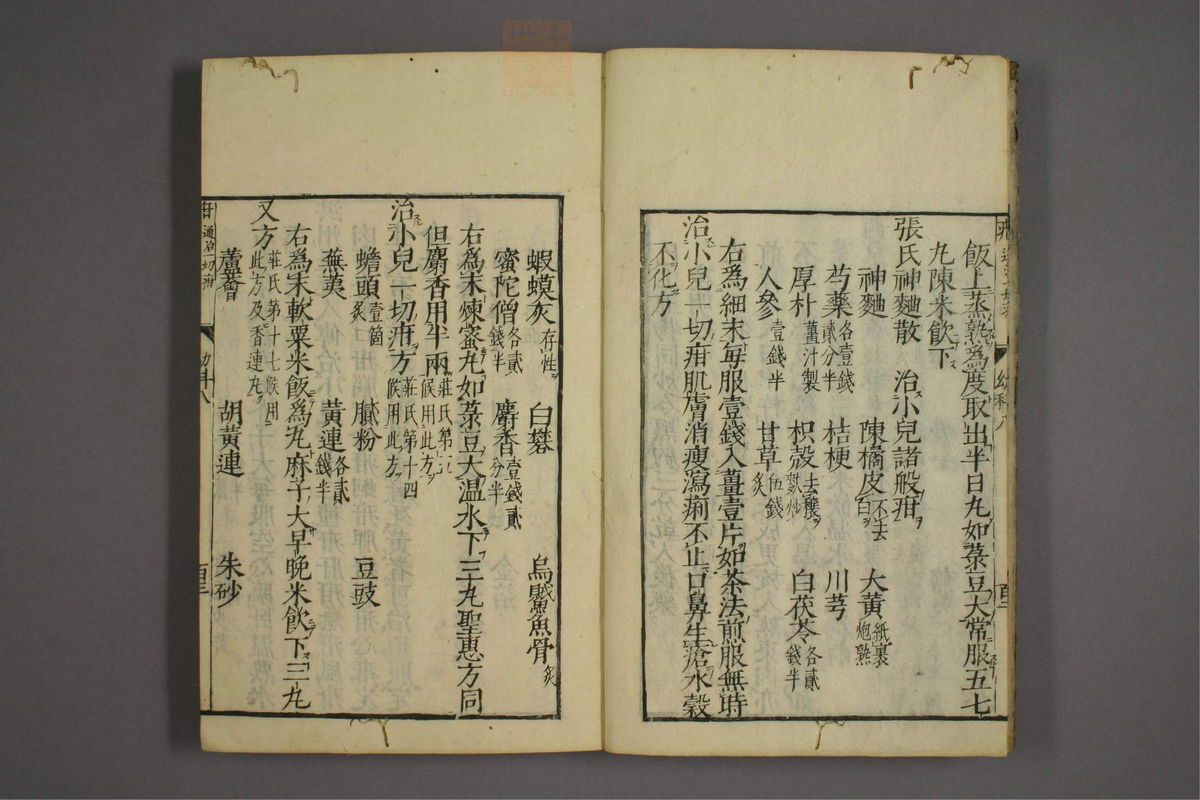 飯上蒸熟為度取出半日丸如菉豆大常服五七
丸陳米飲下
張氏神麯散　治小兒諸般疳
神麯　陳橘皮不去白　大黄紙裏炮熟
芍藥各壹錢貳分半　桔梗　川芎
厚朴薑汁製　枳殼去穰麩炒　白茯苓各貳錢半
人參壹錢半　甘草伍錢炙
右為細末每服壹錢入薑壹片如茶法煎服無時
治小兒一切疳肌膚消瘦瀉痢不止口鼻生瘡水穀
不化方
蝦蟆灰存性　白礬　烏鰂魚骨炙
蜜陀僧各貳錢半　麝香壹錢貳分半
右為末煉蜜丸如菉豆大温水下三丸聖惠方同
但麝香用半兩莊氏第候用此方
治小兒一切疳方莊氏第十四候用此方
蟾頭壹箇炙　膩粉　豆豉
蕪荑　黄連各貳錢半
右為末軟粟米飯為丸麻子大早晚米飲下三丸
又方莊氏第十七候用此方及香連丸
蘆薈　胡黄連　朱砂
通治一切疳　幼科八